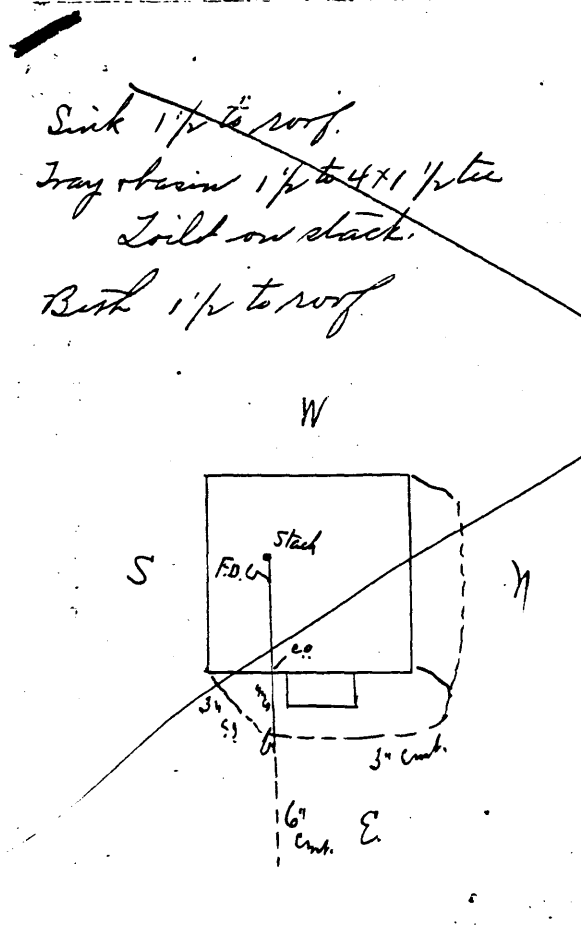 Sink 1 1/2" to roof.
Tray & basin 1 1/2 to 4 x 1 1/2 tee
Toilt on stack.
Bath 1 1/2 to roof
W
Stack
F.D.
S
N
c.o.
3"
3" cmt.
6"
cmt.
E.